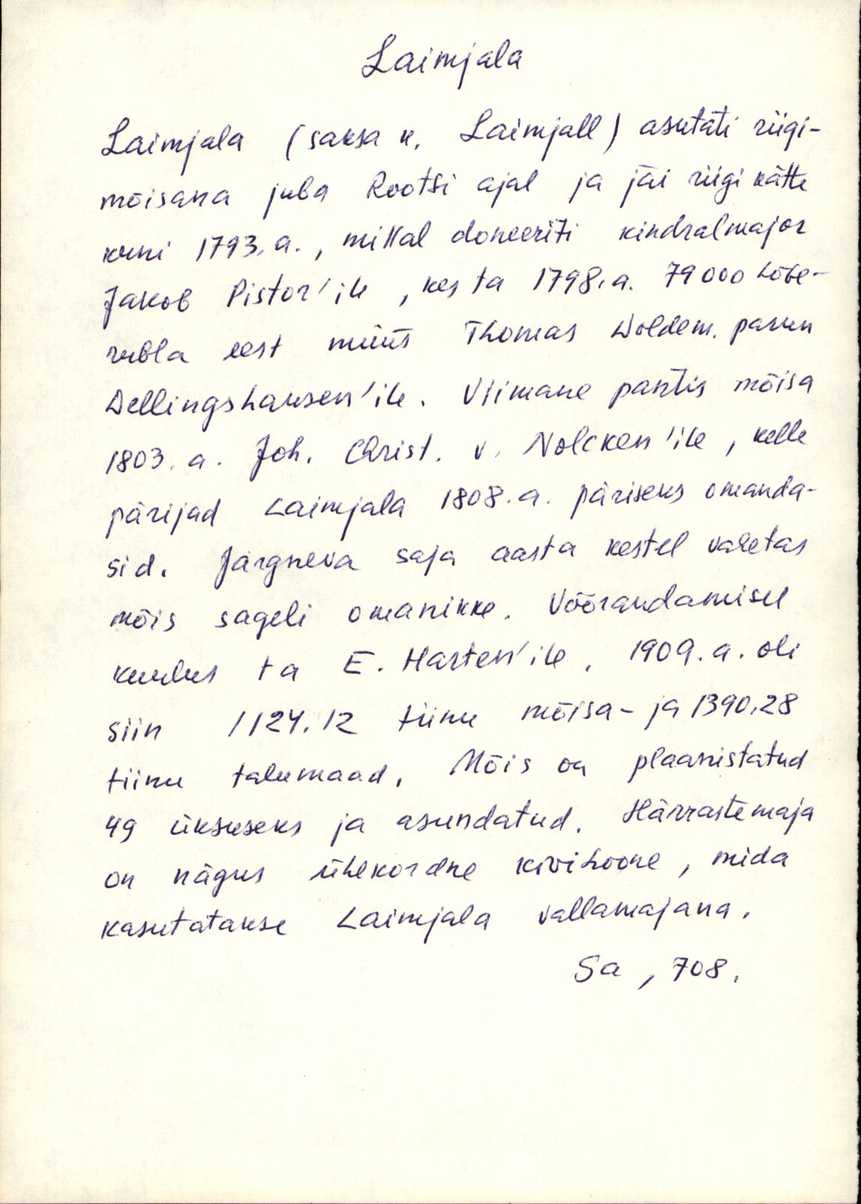 Laimjala
Laimjala (saksa k. Laimjall) asutati riigi-
mõisana juba Rootsi ajal ja jäi riigi kätte
kuni 1793. a., millal doneeriti kindralmajor
Jakob Pistor'ile, kes ta 1798. a. 79000 hõbe-
rubla eest müüs Thomas Woldem. parun
Dellingshausen'ile. Viimane pantis mõisa
1803. a. Joh. Christ. v. Nolcken'ile, kelle
pärijad Laimjala 1808. a. päriseks omanda-
sid. Järgneva saja aasta kestel vahetas
mõis sageli omanikke. Võõrandamisel
kuulus ta E. Harten'ile. 1909. a. oli
siin 1124.12 tiinu mõisa- ja 1390.28
tiinu talumaad. Mõis on plaanistatud
49 üksuseks ja asundatud. Härrastemaja
on nägus ühekordne kivihoone, mida
kasutatakse Laimjala vallamajana.
Sa, 708.